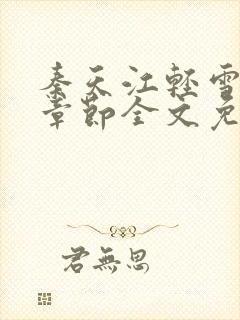 秦天江轻雪
章节全文免
君無思